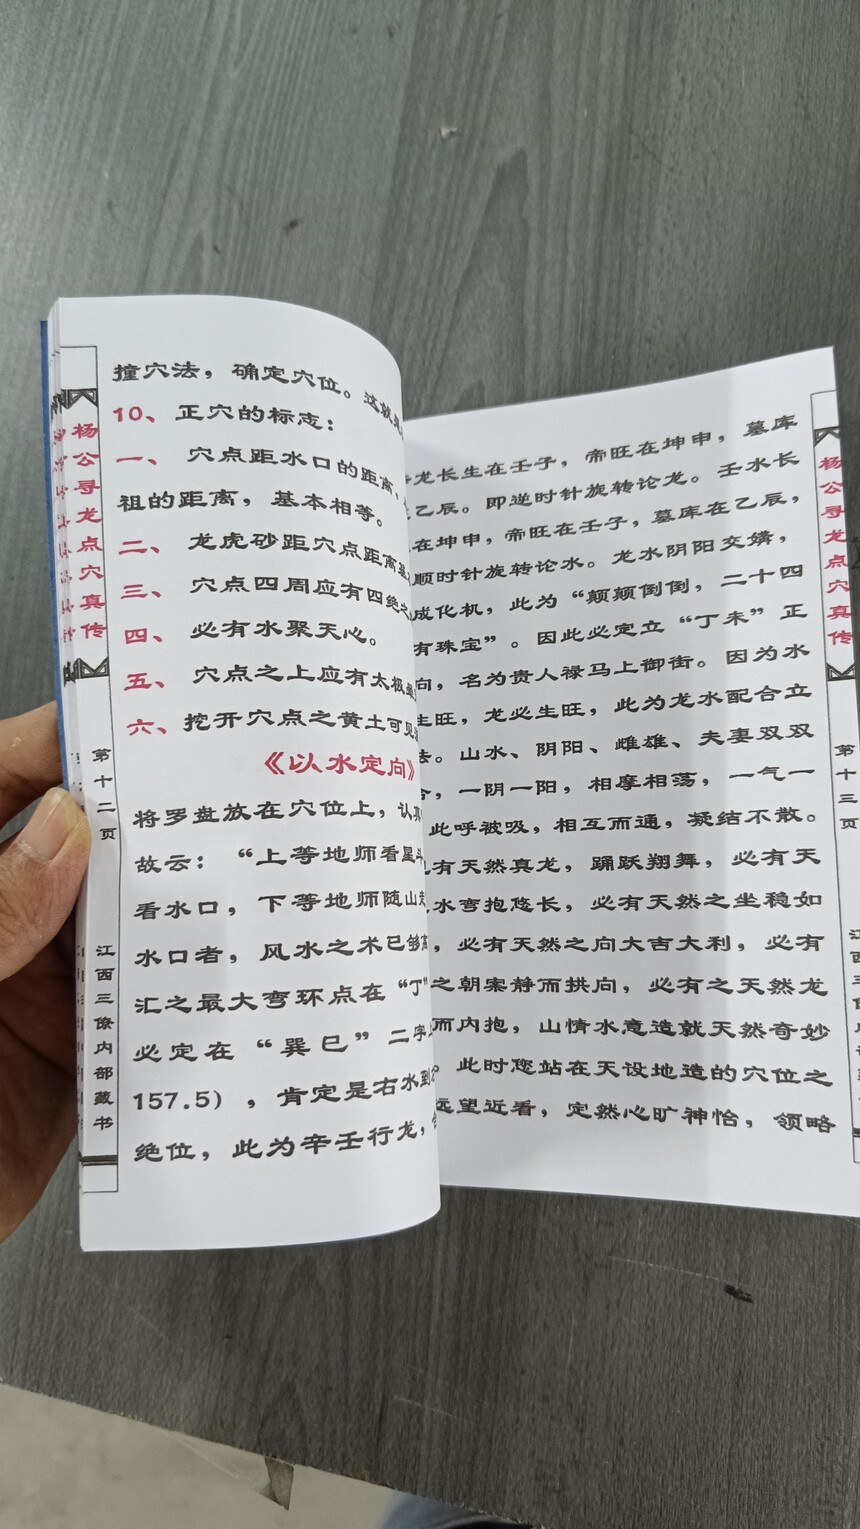 撞穴法，确定穴位。这就是
10、正穴的标志：
一、穴点距水口的距离，
祖的距离，基本相等。
二、龙虎砂距穴点距离
三、穴点四周应有四绝
四、必有水聚天心。
五、穴点之上应有太极
六、挖开穴点之黄土可见
《以水定向》
将罗盘放在穴位上，认真
故云：“上等地师看星斗
看水口，下等地师随山走
水口者，风水之术已够
汇之最大弯环点在“丁”
必定在“巽巳”二字
157.5），肯定是右水到
绝位，此为辛壬行龙，
杨公寻龙点穴真传
第十二页
江西三僚内部藏书
龙长生在壬子，帝旺在坤申，墓库
乙辰。即逆时针旋转论龙。壬水长
在坤申，帝旺在壬子，墓库在乙辰，
顺时针旋转论水。龙水阴阳交媾，
成化机，此为“颠颠倒倒，二十四
有珠宝”。因此必定立“丁未”正
向，名为贵人禄马上御街。因为水
生旺，龙必生旺，此为龙水配合立
法。山水、阴阳、雌雄、夫妻双双
，一阴一阳，相摩相荡，一气一
此呼被吸，相互而通，凝结不散。
有天然真龙，踊跃翔舞，必有天
水弯抱悠长，必有天然之坐稳如
，必有天然之向大吉大利，必有
之朝案静而拱向，必有之天然龙
而内抱，山情水意造就天然奇妙
此时您站在天设地造的穴位之
远望近看，定然心旷神怡，领略
杨公寻龙点穴真传
第十三页
江西三